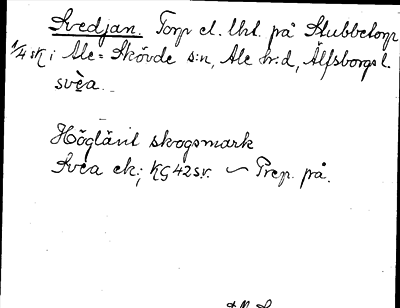 Svedjan. Torp el. lht. på Stubbetorp
1/4 sk i Ale-Skövde s:n, Ale hr:d, Älfsborgs l.
svèa.
Höglänt skogsmark
Svea ek; KG 42 sv. ~ Prep. på.